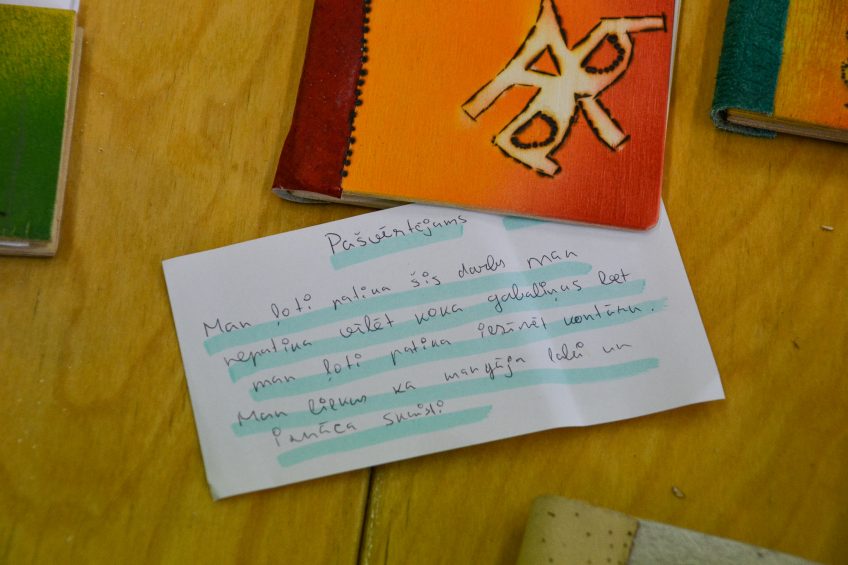 Pašvērtējums
Man ļoti patika šis darbs man
nepatika vīlēt koka gabaliņus bet
man ļoti patika iezīmēt kontūru.
Man liekas ka man gāja labi un
iznāca skaisti